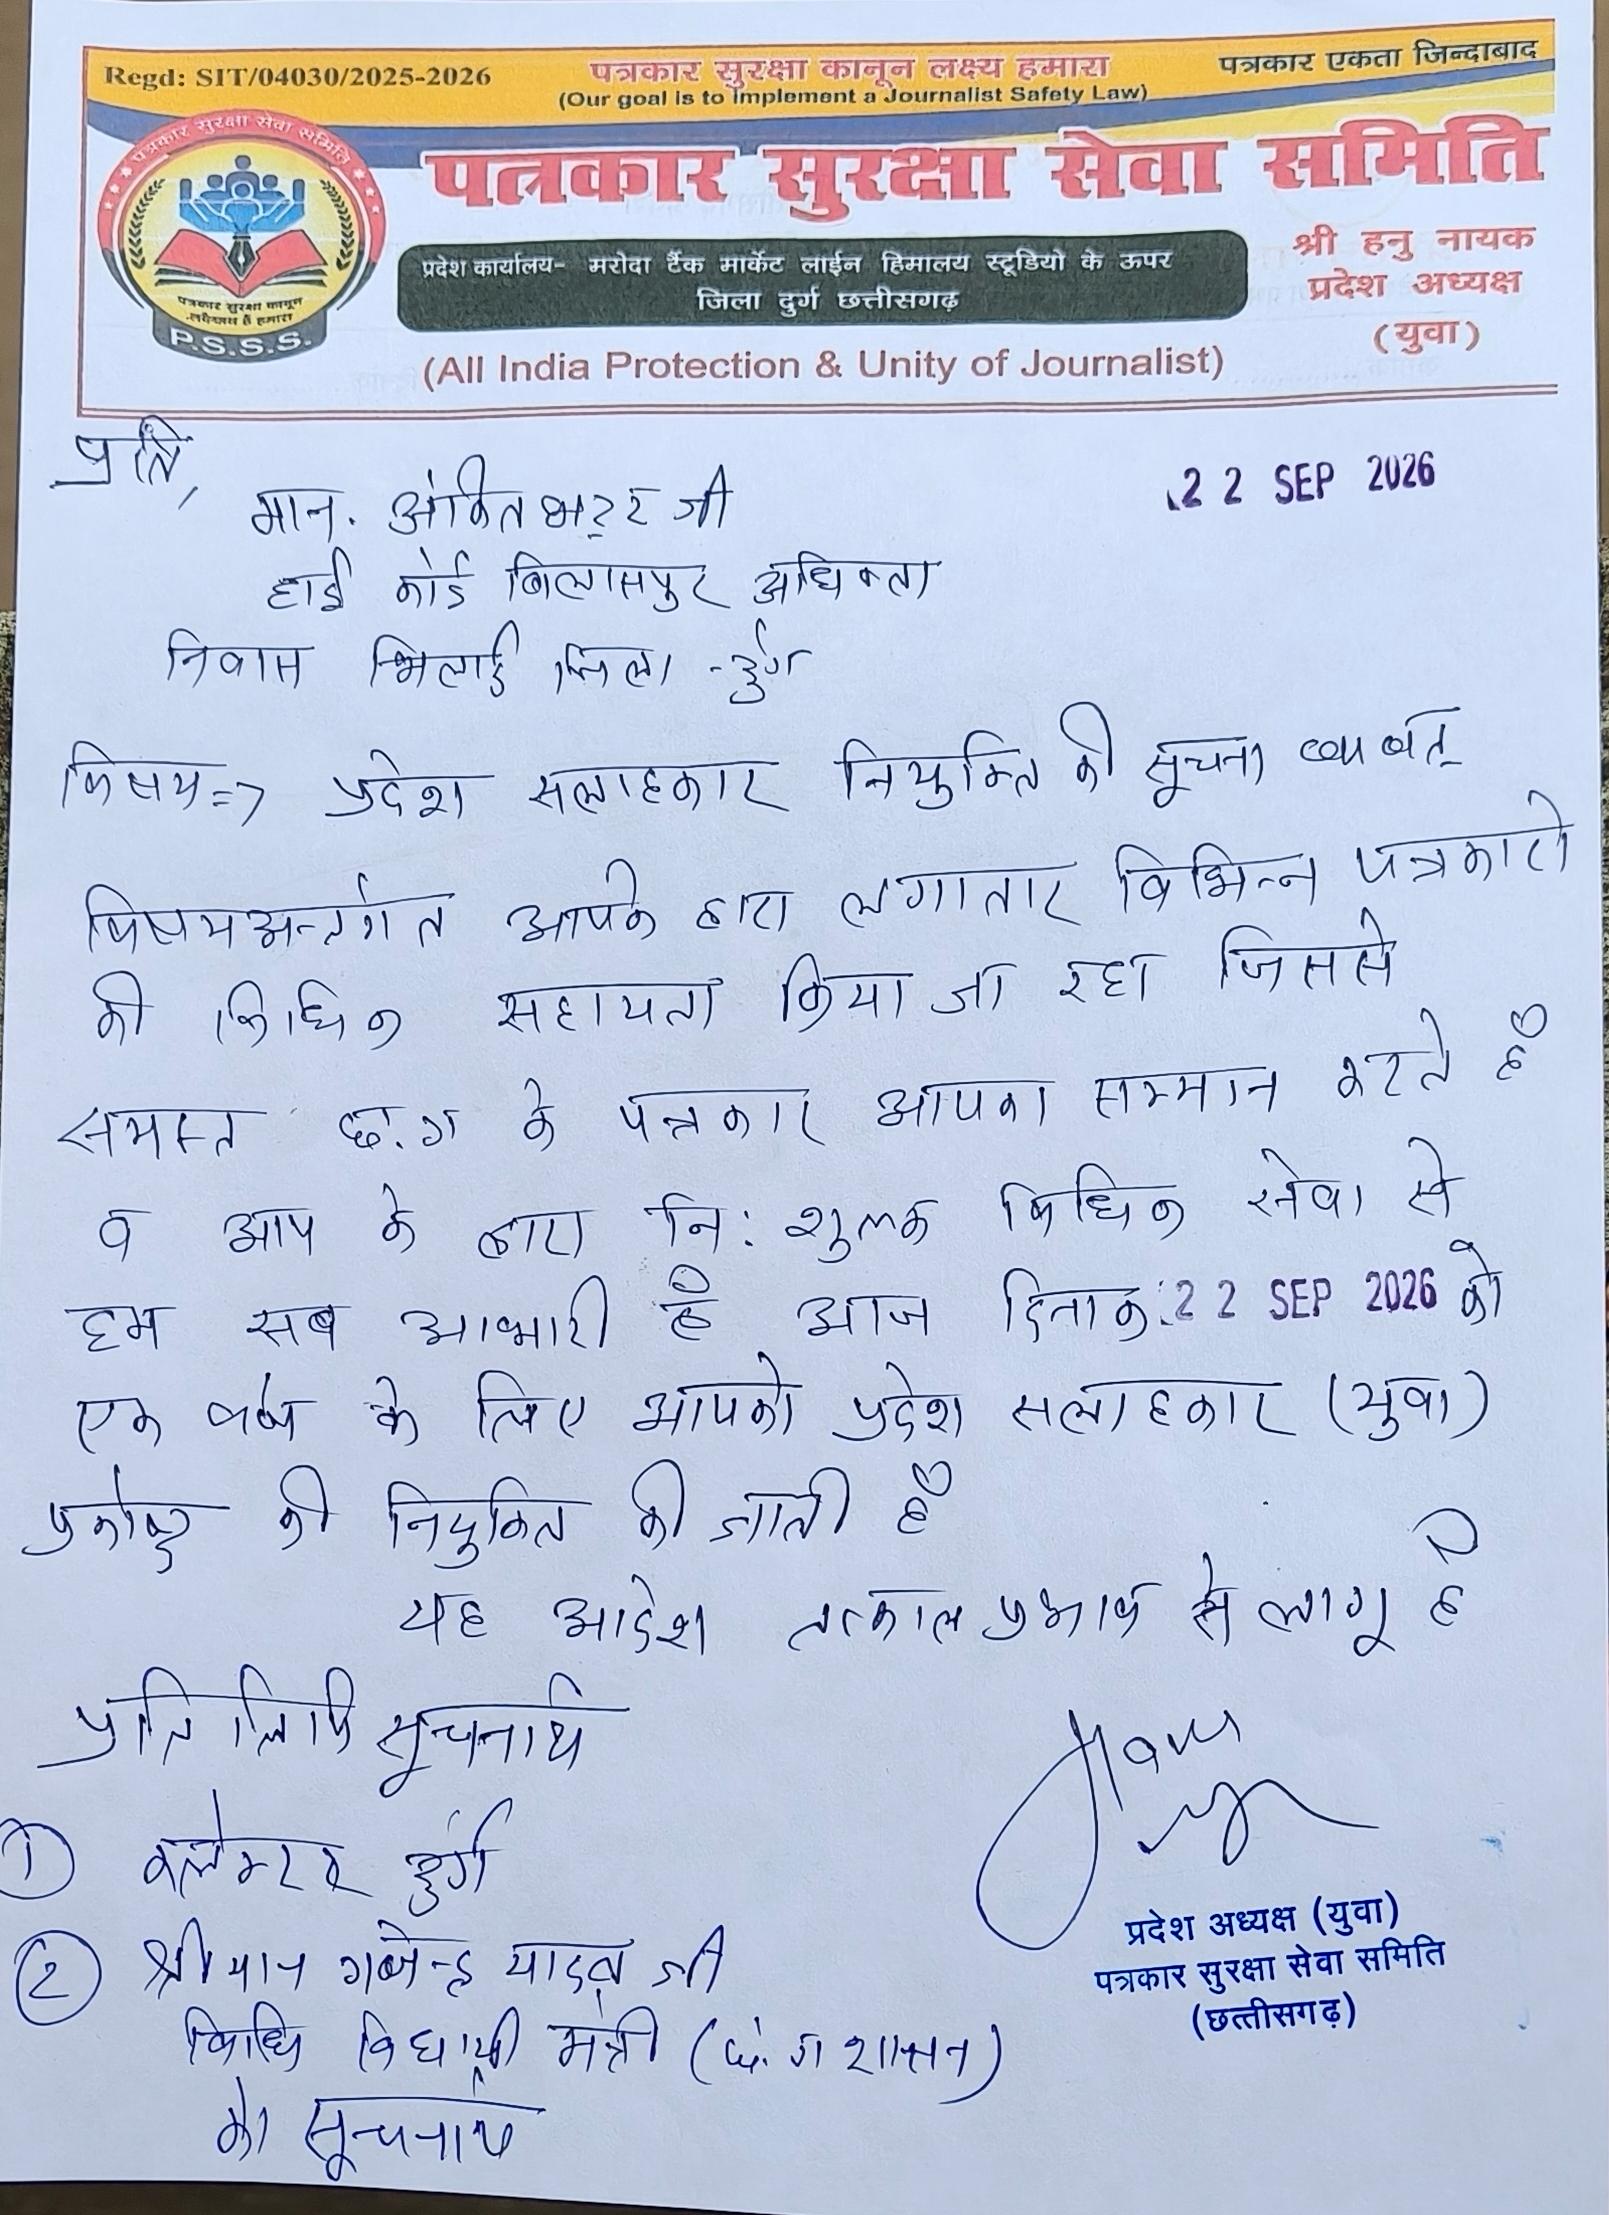 Regd: SIT/04030/2025-2026
पत्रकार सुरक्षा कानून लक्ष्य हमारा
(Our goal is to implement a Journalist Safety Law)
पत्रकार एकता जिन्दाबाद
पत्रकार सुरक्षा सेवा समिति
पत्रकार सुरक्षा सेवा समिति
प्रदेश कार्यालय- मरोदा टैंक मार्केट लाईन हिमालय स्टूडियो के ऊपर
जिला दुर्ग छत्तीसगढ़
श्री हनु नायक
प्रदेश अध्यक्ष
(युवा)
पत्रकार सुरक्षा कानून
हमारा
P.S.S.S.
(All India Protection & Unity of Journalist)
प्रति,
22 SEP 2026
मान. अंकित भट्ट जी
हाई कोर्ट बिलासपुर अधिवक्ता
निवास भिलाई जिला - दुर्ग
विषय => प्रदेश सलाहकार नियुक्ति की सूचना
विषयअन्तर्गत आपके द्वारा लगातार विभिन्न पत्रकारो
की विधिक सहायता किया जा रहा जिससे
समस्त छ.ग के पत्रकार आपका सम्मान करते हैं
व आप के द्वारा नि: शुल्क विधिक सेवा से
हम सब आभारी है आज दिनांक 22 SEP 2026 को
एक वर्ष के लिए आपको प्रदेश सलाहकार (युवा)
प्रकोष्ठ की नियुक्ति की जाती हैं
यह आदेश तत्काल प्रभाव से लागू है
प्रतिलिपि सूचनार्थ
1 कलेक्टर दुर्ग
2 श्रीमान गजेन्द्र यादव जी
विधि विधायी मंत्री (छ.ग शासन)
को सूचनार्थ
प्रदेश अध्यक्ष (युवा)
पत्रकार सुरक्षा सेवा समिति
(छत्तीसगढ़)